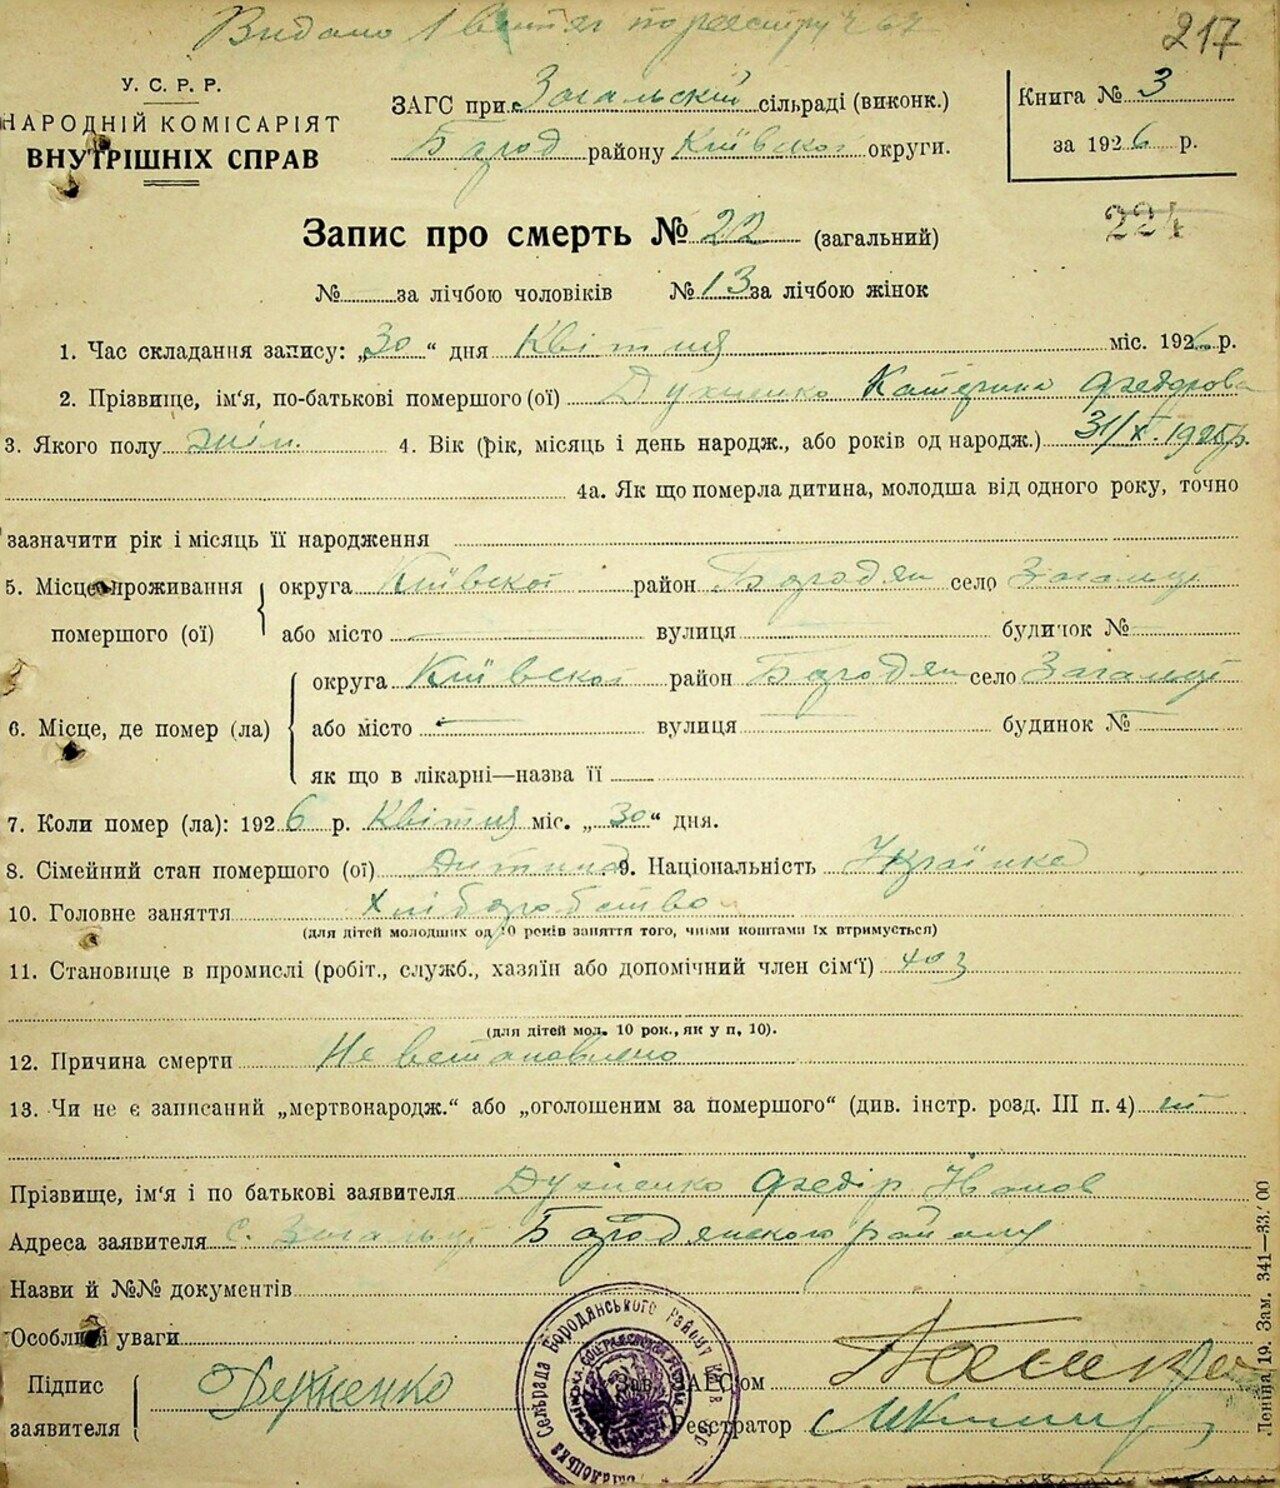 Видано 1 по реєстру 267
217
У. С. Р. Р.
НАРОДНІЙ КОМІСАРІЯТ
ВНУТРІШНІХ СПРАВ
ЗАГС при Загальскій сільраді (виконк.)
Бород району Київскої округи.
Книга № 3
за 1926 р.
Запис про смерть № 22 (загальний)
224
№ за лічбою чоловіків № 13 за лічбою жінок
1. Час складання запису: „30“ дня Квітня міс. 1926 р.
2. Прізвище, ім‘я, по-батькові помершого (ої) Духненко Катерина Федорова
3. Якого полу жін. 4. Вік (рік, місяць і день народж., або років од народж.) 31/X. 1925 р.
4а. Як що померла дитина, молодша від одного року, точно
зазначити рік і місяць її народження
5. Місце проживання помершого (ої) округа Київскої район Бородян село Загальці
або місто — вулиця — будинок № —
6. Місце, де помер (ла) округа Київскої район Бородян село Загальці
або місто — вулиця — будинок № —
як що в лікарні—назва її
7. Коли помер (ла): 1926 р. Квітня міс. „30“ дня.
8. Сімейний стан помершого (ої) Дитина 9. Національність Українка
10. Головне заняття Хліборобство
(для дітей молодших од 10 років заняття того, чиїми коштами їх втримується)
11. Становище в промислі (робіт., служб., хазяїн або допомічний член сім‘ї)
(для дітей мол. 10 рок., як у п. 10).
12. Причина смерти Не встановлено
13. Чи не є записаний „мертвонародж.“ або „оголошеним за помершого“ (див. інстр. розд. III п. 4) ні
Прізвище, ім‘я і по батькові заявителя Духненко Федір
Адреса заявителя с. Загальці Бородянского району
Назви й №№ документів
Особливі уваги
Підпис заявителя Духненко
Зав. ЗАГС‘ом
Реєстратор
Сельрада Бородянського району
Леніна 19. Зам. 341—33.′00